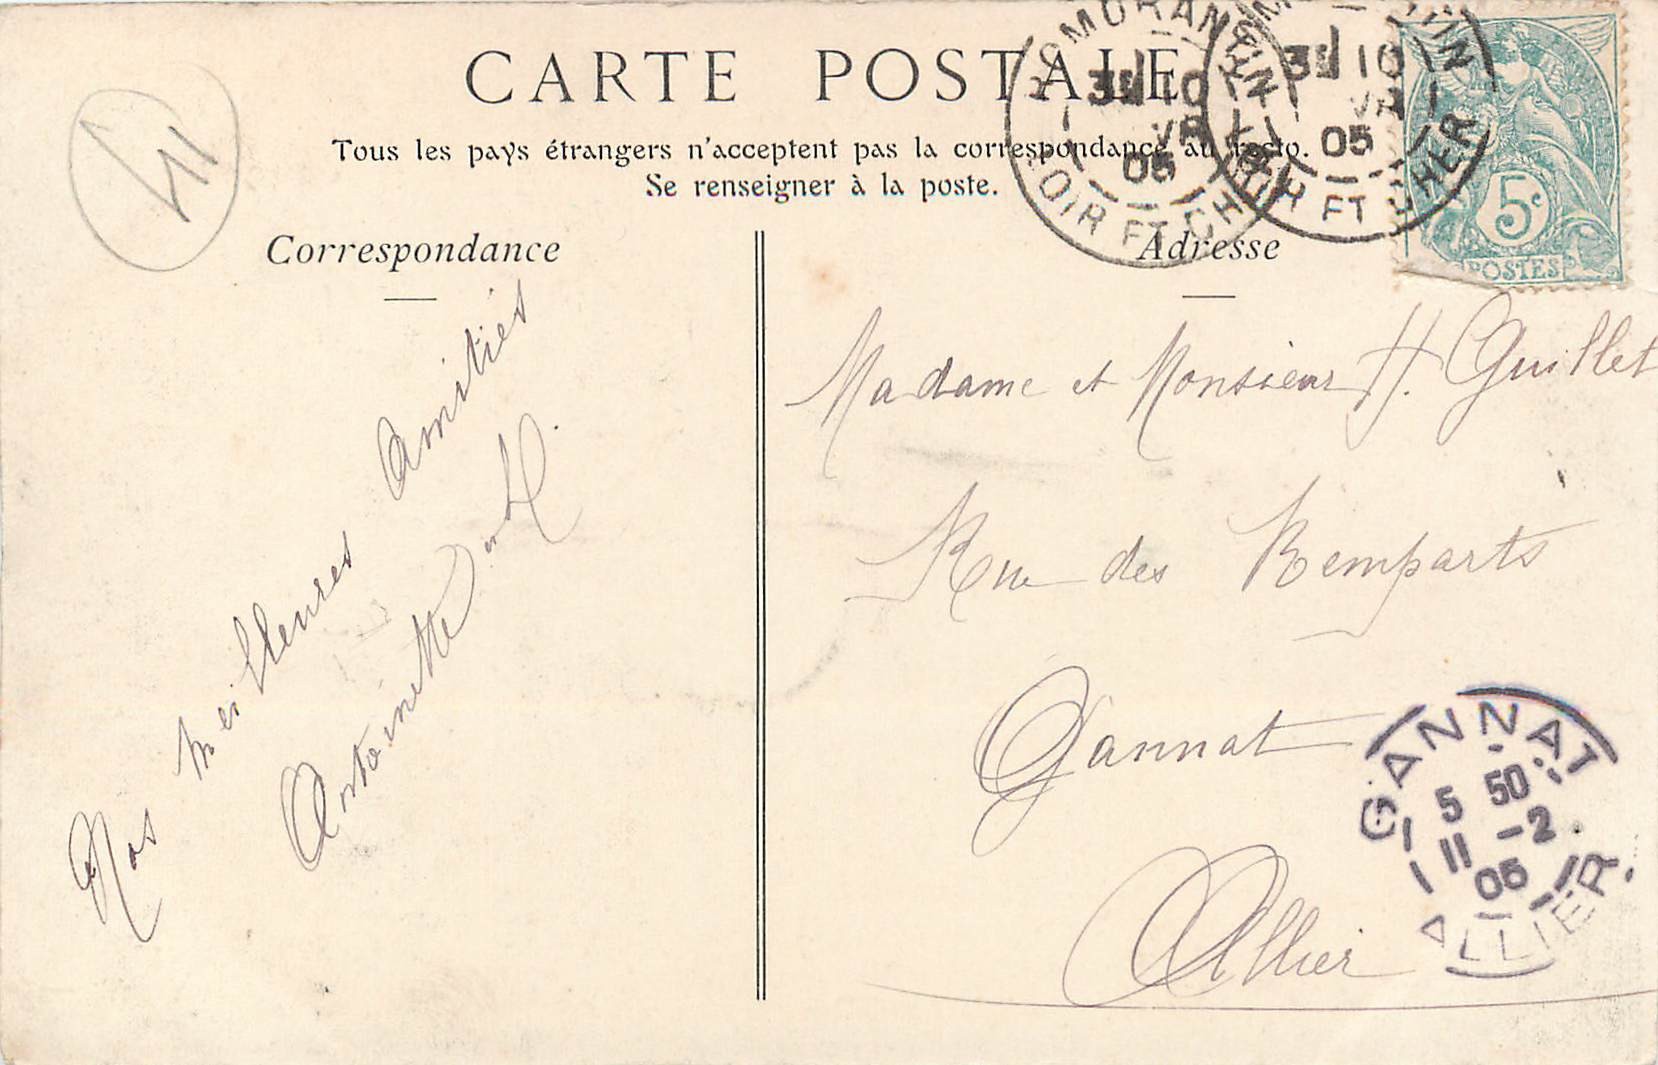 41
CARTE POSTALE
Tous les pays étrangers n'acceptent pas la correspondance au recto.
Se renseigner à la poste.
Correspondance
Nos meilleures Amitiés
Antoinette
Adresse
Madame et Monsieur H. Guillet
Rue des Remparts
Gannat
Allier
ROMORANTIN
3E 10
05
LOIR ET CHER
3E 10
05
LOIR ET CHER
5c
POSTES
GANNAT
5 50
11 -2
05
ALLIER